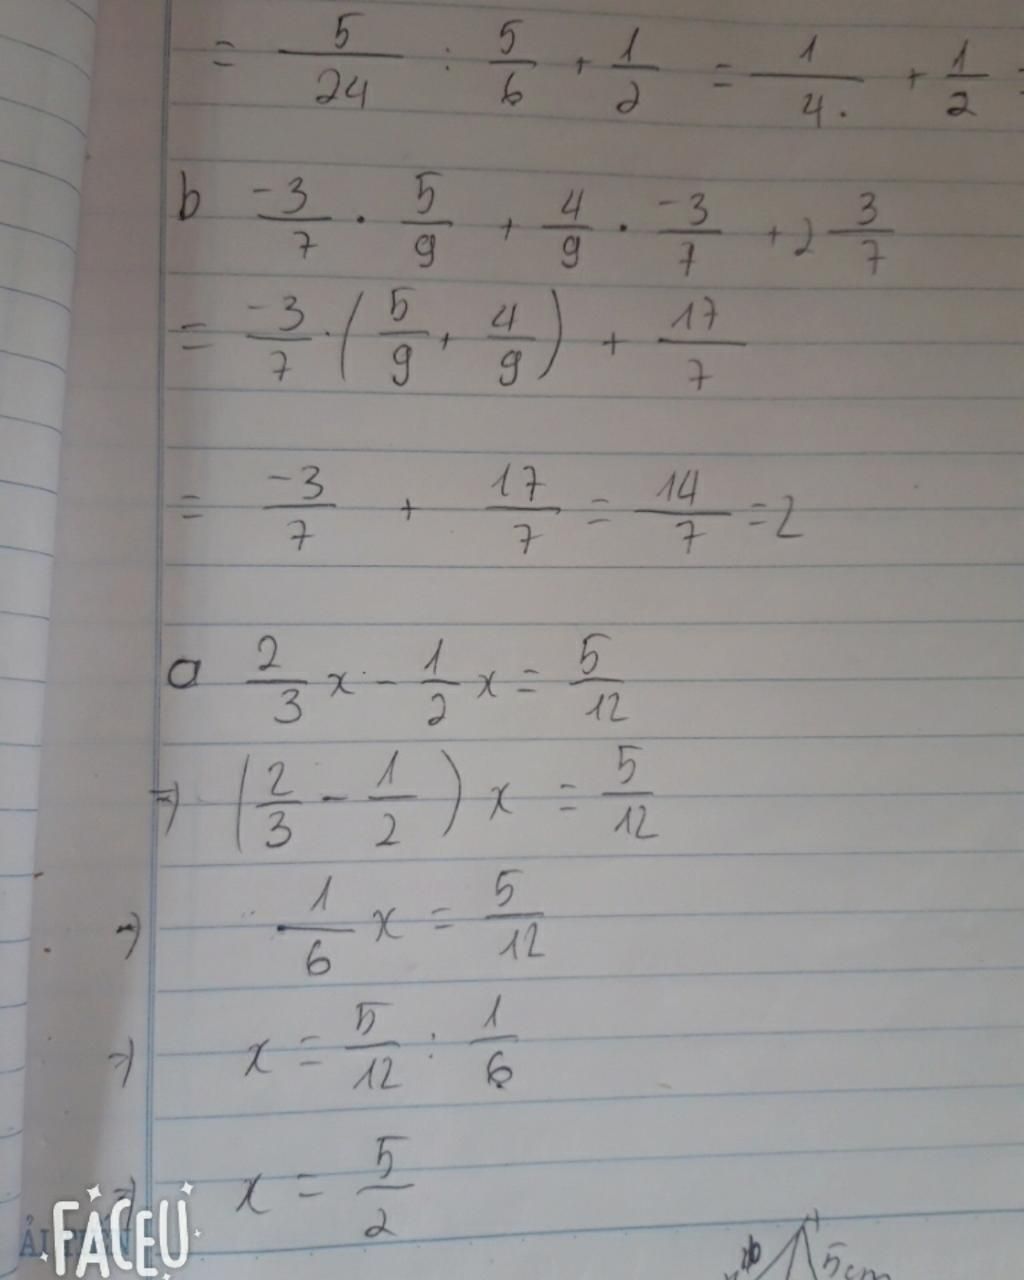 = 5/24 : 5/6 + 1/2 = 1/4. + 1/2 =
b -3/7 . 5/9 + 4/9 . -3/7 + 2 3/7
= -3/7 . (5/9 + 4/9) + 17/7
= -3/7 + 17/7 = 14/7 = 2
a 2/3 x - 1/2 x = 5/12
=) (2/3 - 1/2) x = 5/12
=) 1/6 x = 5/12
=) x = 5/12 : 1/6
=) x = 5/2
5cm
FACEU